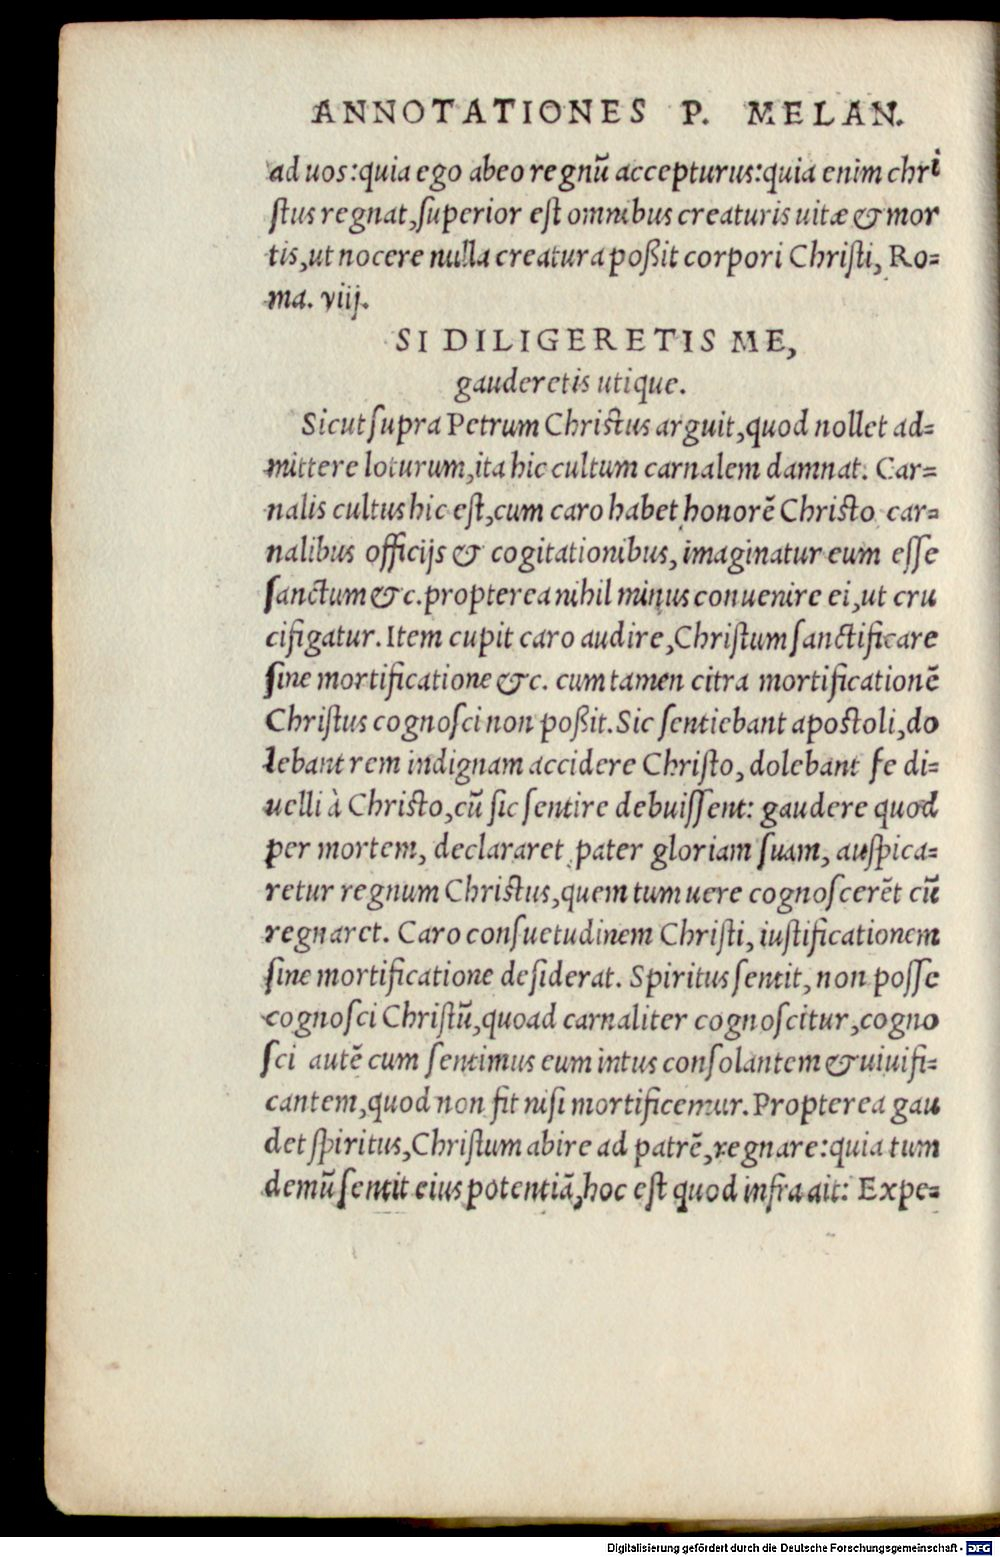 ANNOTATIONES P. MELAN.
ad uos: quia ego abeo regnũ accepturus: quia enim chri
ſtus regnat, ſuperior eſt omnibus creaturis uitæ & mor
tis, ut nocere nulla creatura poßit corpori Chriſti, Ro=
ma. viij.
SI DILIGERETIS ME,
gauderetis utique.
Sicut ſupra Petrum Chriſtus arguit, quod nollet ad=
mittere loturum, ita hic cultum carnalem damnat. Car=
nalis cultus hic eſt, cum caro habet honorẽ Chriſto car=
nalibus officijs & cogitationibus, imaginatur eum eſſe
ſanctum &c. propterea nihil minus conuenire ei, ut cru
cifigatur. Item cupit caro audire, Chriſtum ſanctificare
ſine mortificatione &c. cum tamen citra mortificationẽ
Chriſtus cognoſci non poßit. Sic ſentiebant apoſtoli, do
lebant rem indignam accidere Chriſto, dolebant ſe di=
uelli à Chriſto, cũ ſic ſentire debuiſſent: gaudere quod
per mortem, declararet pater gloriam ſuam, auſpica=
retur regnum Chriſtus, quem tum uere cognoſcerẽt cũ
regnaret. Caro conſuetudinem Chriſti, iuſtificationem
ſine mortificatione deſiderat. Spiritus ſentit, non poſſe
cognoſci Chriſtũ, quoad carnaliter cognoſcitur, cogno
ſci autẽ cum ſentimus eum intus conſolantem & uiuifi=
cantem, quod non fit niſi mortificemur. Propterea gau
det ſpiritus, Chriſtum abire ad patrẽ, regnare: quia tum
demũ ſentit eius potentiã, hoc eſt quod infra ait: Expe=
Digitalisierung gefördert durch die Deutsche Forschungsgemeinschaft - DFG